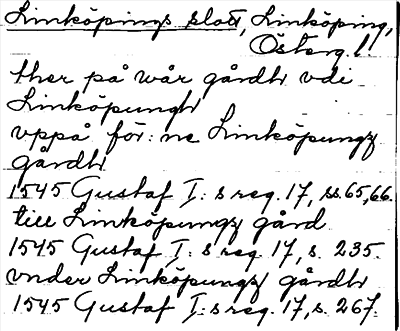 Linköpings slott, Linköping,
Österg.l.
ther på wår gårdh vdi
Linköpungh
vppå för:ne Linköpungz
gårdh
1545 Gustaf I:s reg. 17, ss. 65, 66.
till Linköpungz gård
1545 Gustaf I:s reg. 17, s. 235.
vnder Linköpungz gårdh
1545 Gustaf I:s reg. 17, s. 267.